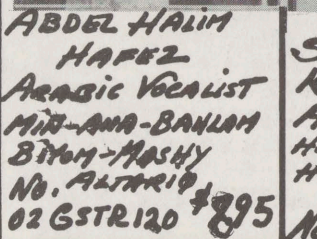 ABDEL HALIM
HAFEZ
ARABIC VOCALIST
BIYOM-MASHY
No. ALTARIQ
02 GSTR120 $895